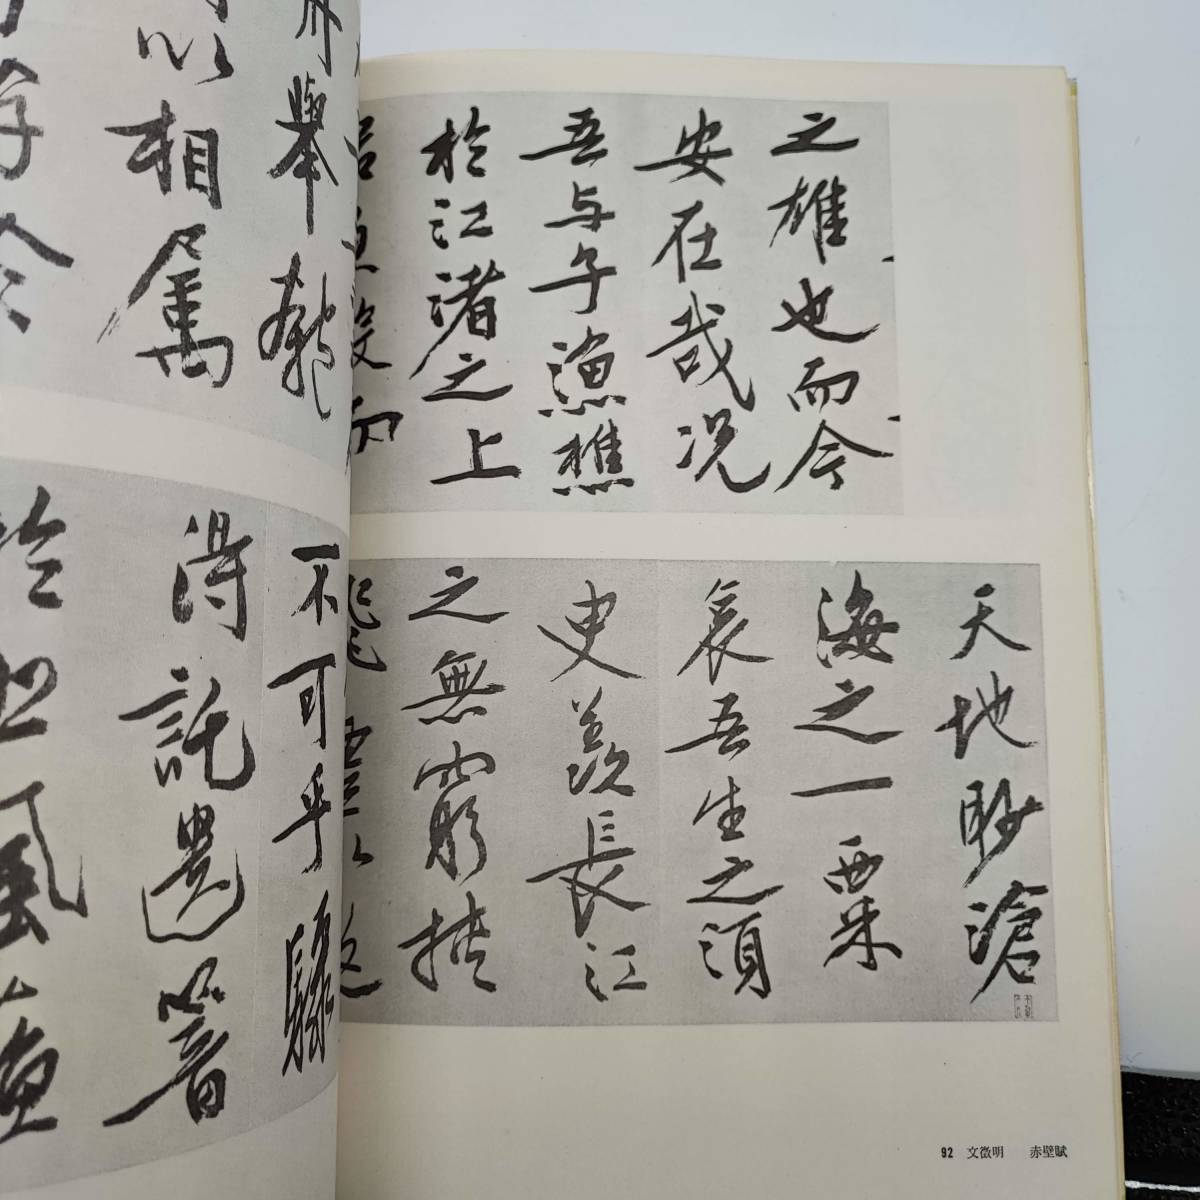 之雄也而今
安在哉况
吾与子漁樵
於江渚之上
天地眇滄
海之一粟
哀吾生之須
臾羨長江
之無窮挾
92 文徵明 赤壁賦
舟舉匏
以相屬
不可乎驟
得託遺響
於悲風蘇